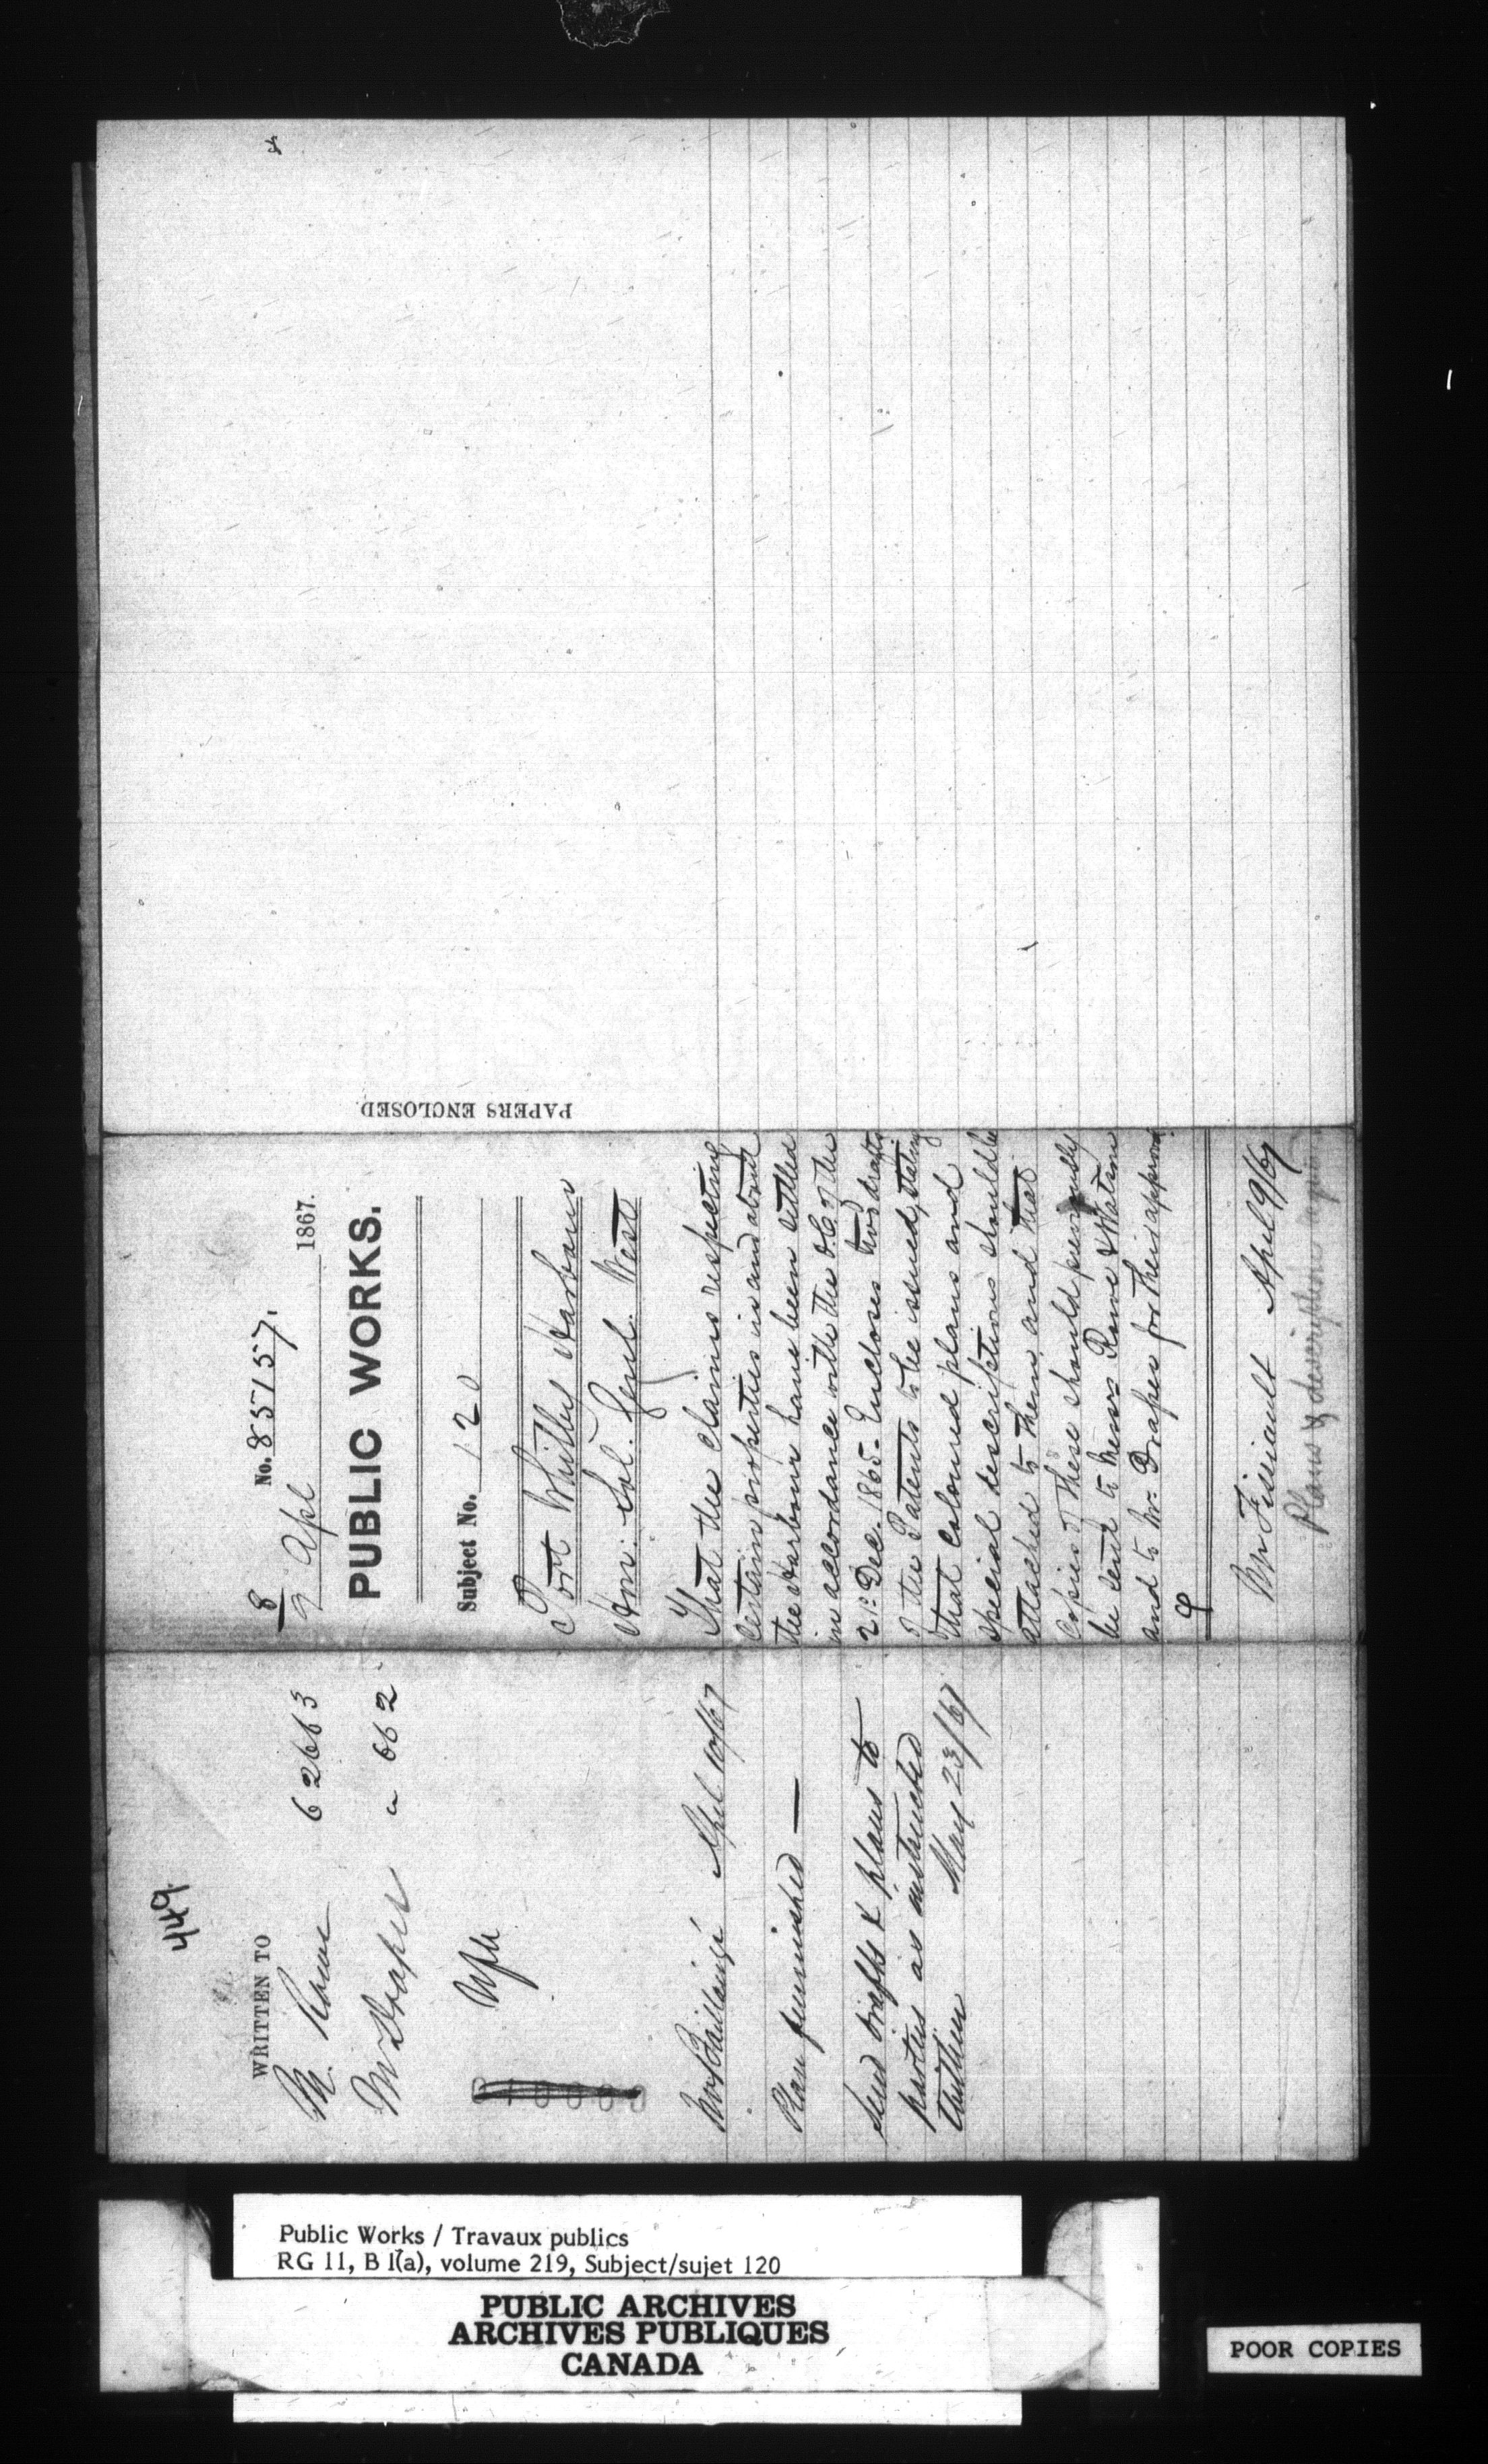 449.
WRITTEN TO
M. Rowe 62663
Mr Draper " 662
Mr Baillairgé April 10/67
Plan furnished —
Send drafts & plans to
parties as instructed
within May 23/67
No. 85157.
8
9 Apl 1867.
PUBLIC WORKS.
Subject No. 120
Port Whitby Harbour
Hon: Sol. Genl. West
That the claims respecting
certain properties in and about
the Harbour have been settled
in accordance with the O.C. of the
21st Dec. 1865. Encloses two drafts
of the Patents to be issued, stating
that coloured plans and
special descriptions should be
attached to them, and that
copies of these should previously
be sent to Messrs Rowe & Watson
and to Mr. Draper for their approval
Mr Fissiault April 9/67
Plans & descriptions
PAPERS ENCLOSED.
Public Works / Travaux publics
RG 11, B 1(a), volume 219, Subject/sujet 120
PUBLIC ARCHIVES
ARCHIVES PUBLIQUES
CANADA
POOR COPIES